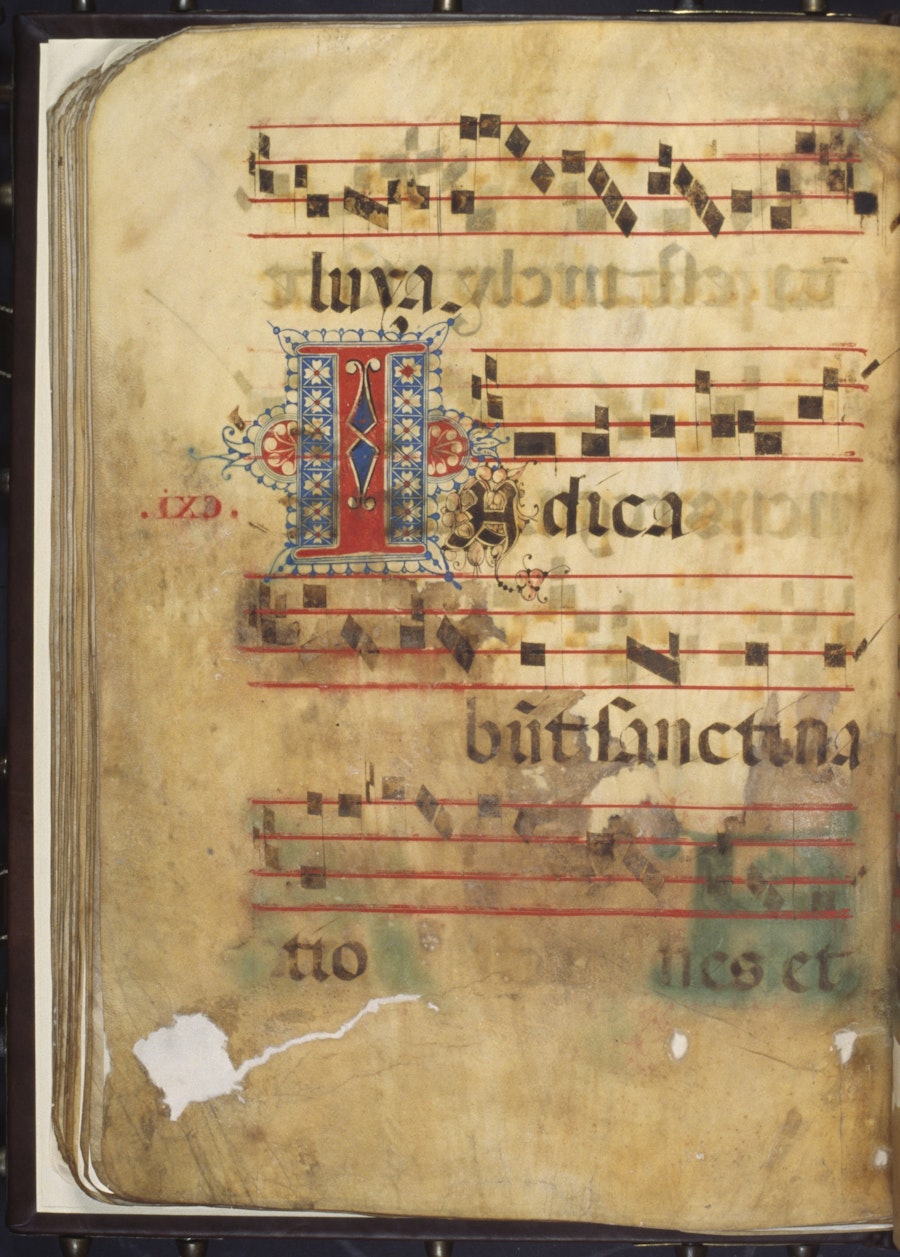 luya.
IUdica
bũt sancti na
tio nes et